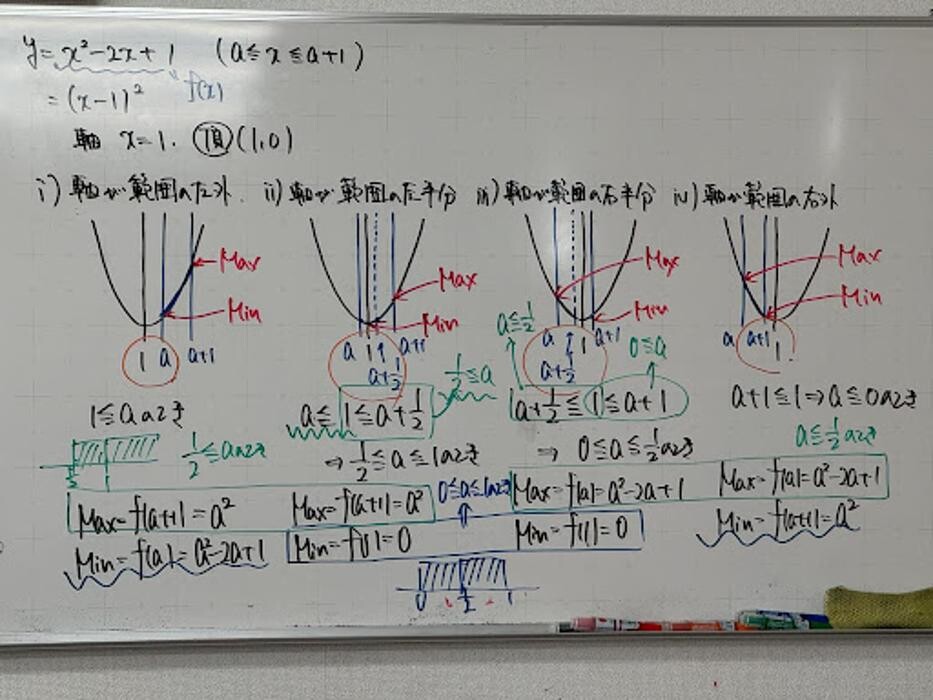 y=x²-2x+1 (a≦x≦a+1)
f(x)
=(x-1)²
軸 x=1. 頂(1,0)
i) 軸が範囲の左外.
Max
Min
1 a a+1
1≦aのとき
1/2≦aのとき
Max=f(a+1)=a²
Min=f(a)=a²-2a+1
ii) 軸が範囲の左半分
Max
Min
a 1 a+1
a+1/2
1/2≦a
a≦1≦a+1/2
⇒1/2≦a≦1のとき
Max=f(a+1)=a²
Min=f(1)=0
0≦a≦1のとき
0 1/2 1
iii) 軸が範囲の右半分
Max
Min
a≦1/2
a 1 a+1
a+1/2
0≦a
a+1/2≦1≦a+1
⇒ 0≦a≦1/2のとき
Max=f(a)=a²-2a+1
Min=f(1)=0
iv) 軸が範囲の右外
Max
Min
a a+1 1
a+1≦1⇒a≦0のとき
a≦1/2のとき
Max=f(a)=a²-2a+1
Min=f(a+1)=a²